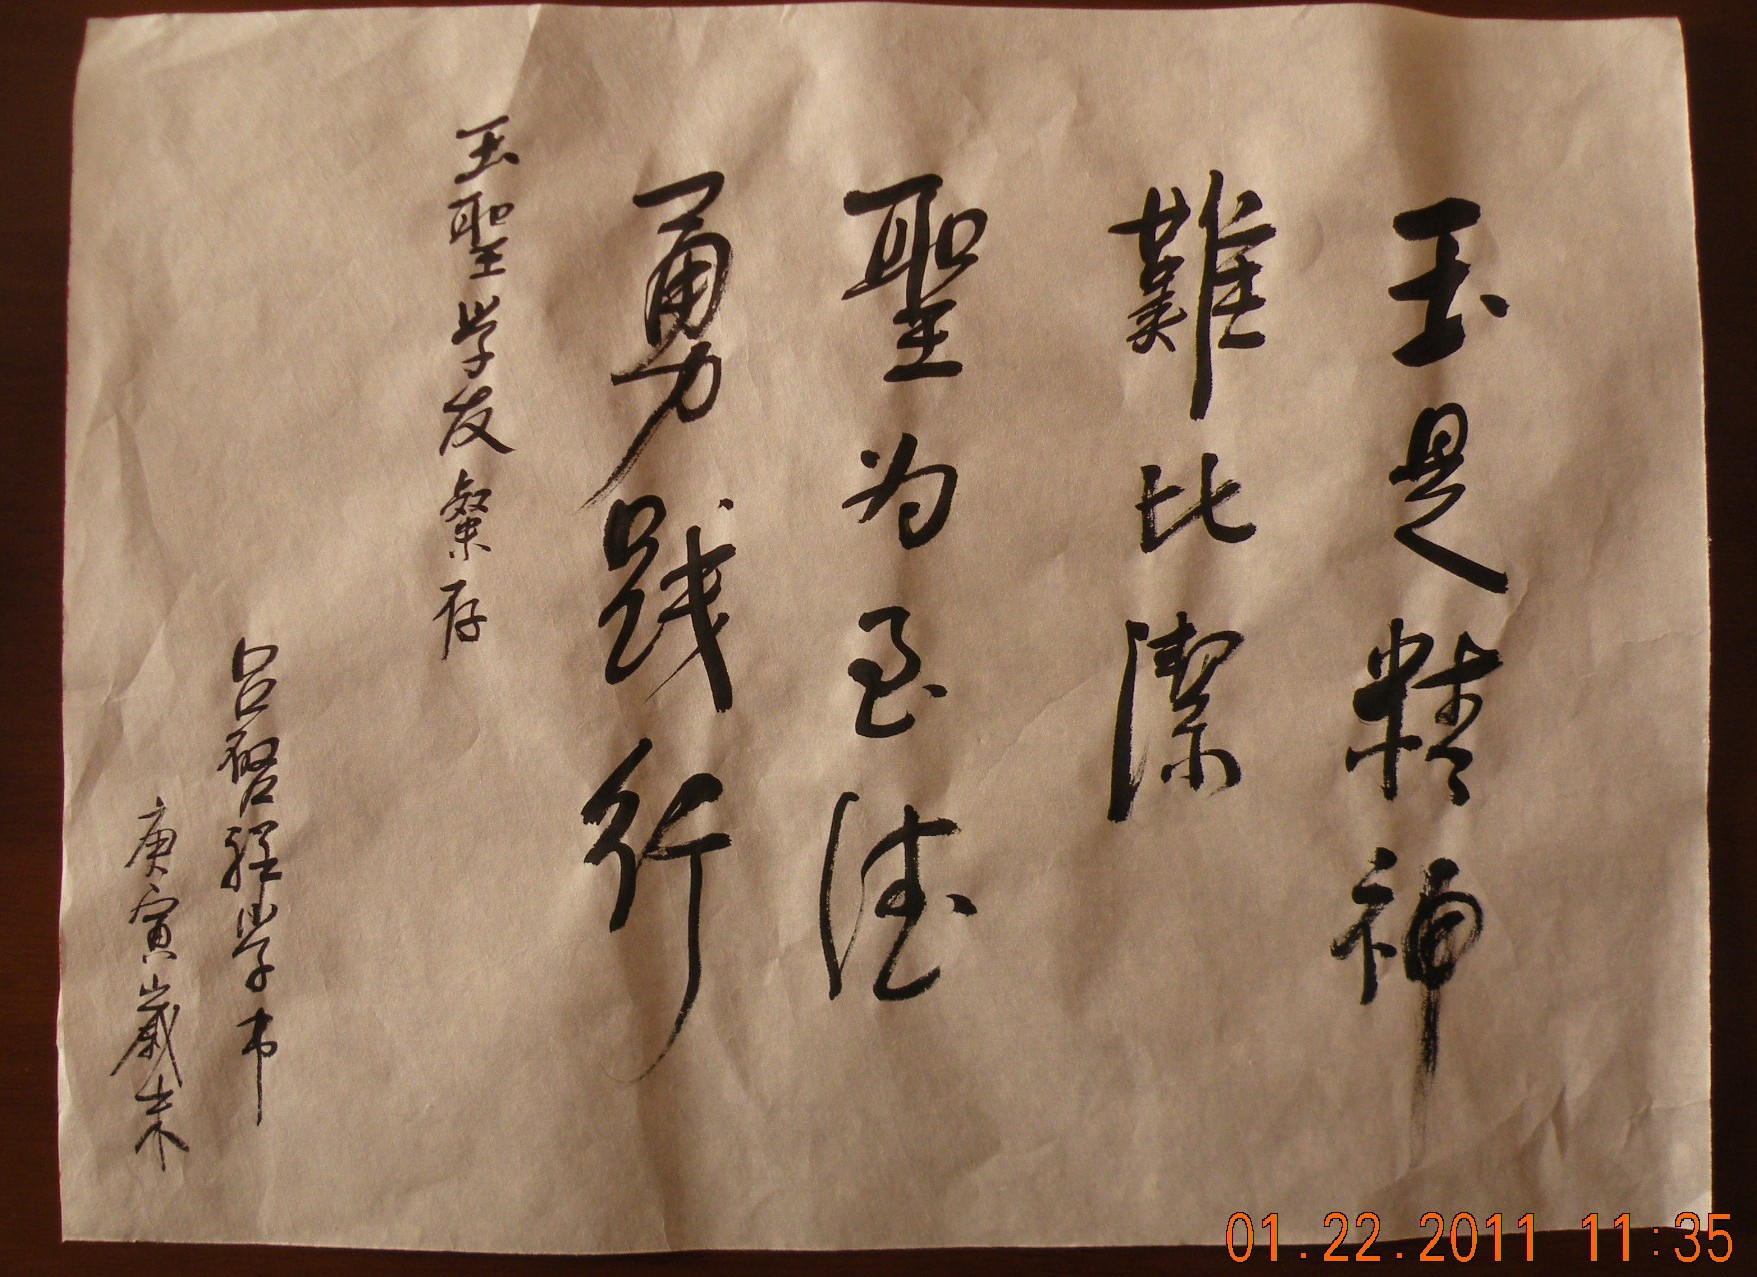 玉是精神
難比潔
聖为至德
勇践行
玉聖学友粲存
吕啓祥学书
庚寅歲末
01.22.2011 11:35